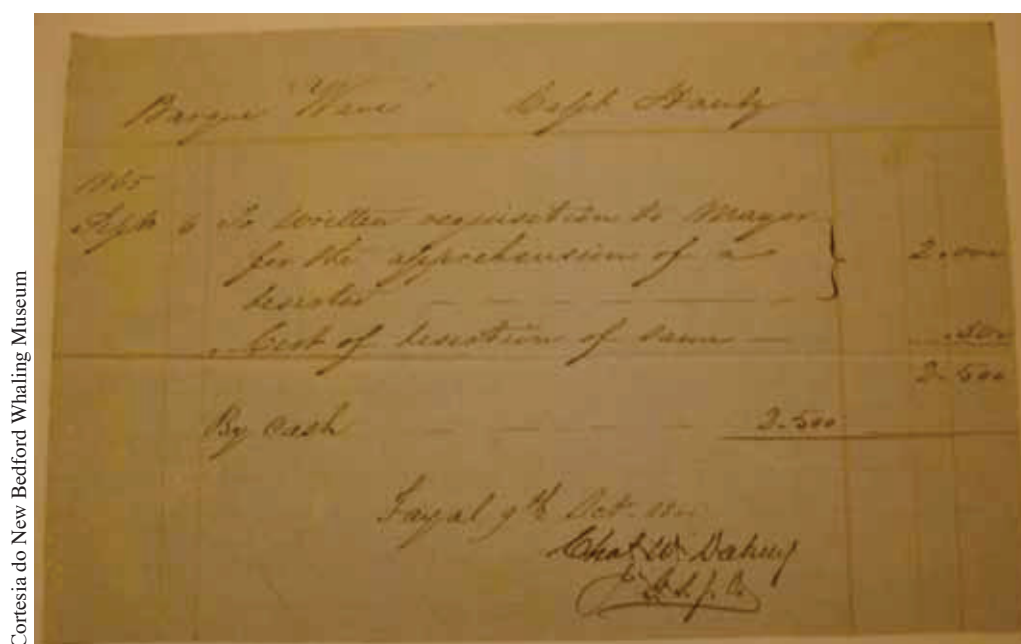 Cortesia do New Bedford Whaling Museum
Barque "Wave" Capt
1865
Sept 6 To written requisition to Mayor
for the apprehension of a
deserter
Cert of desertion of same
2.000
.500
2.500
By Cash 2.500
Fayal 9th Oct
Chas W. Dabney